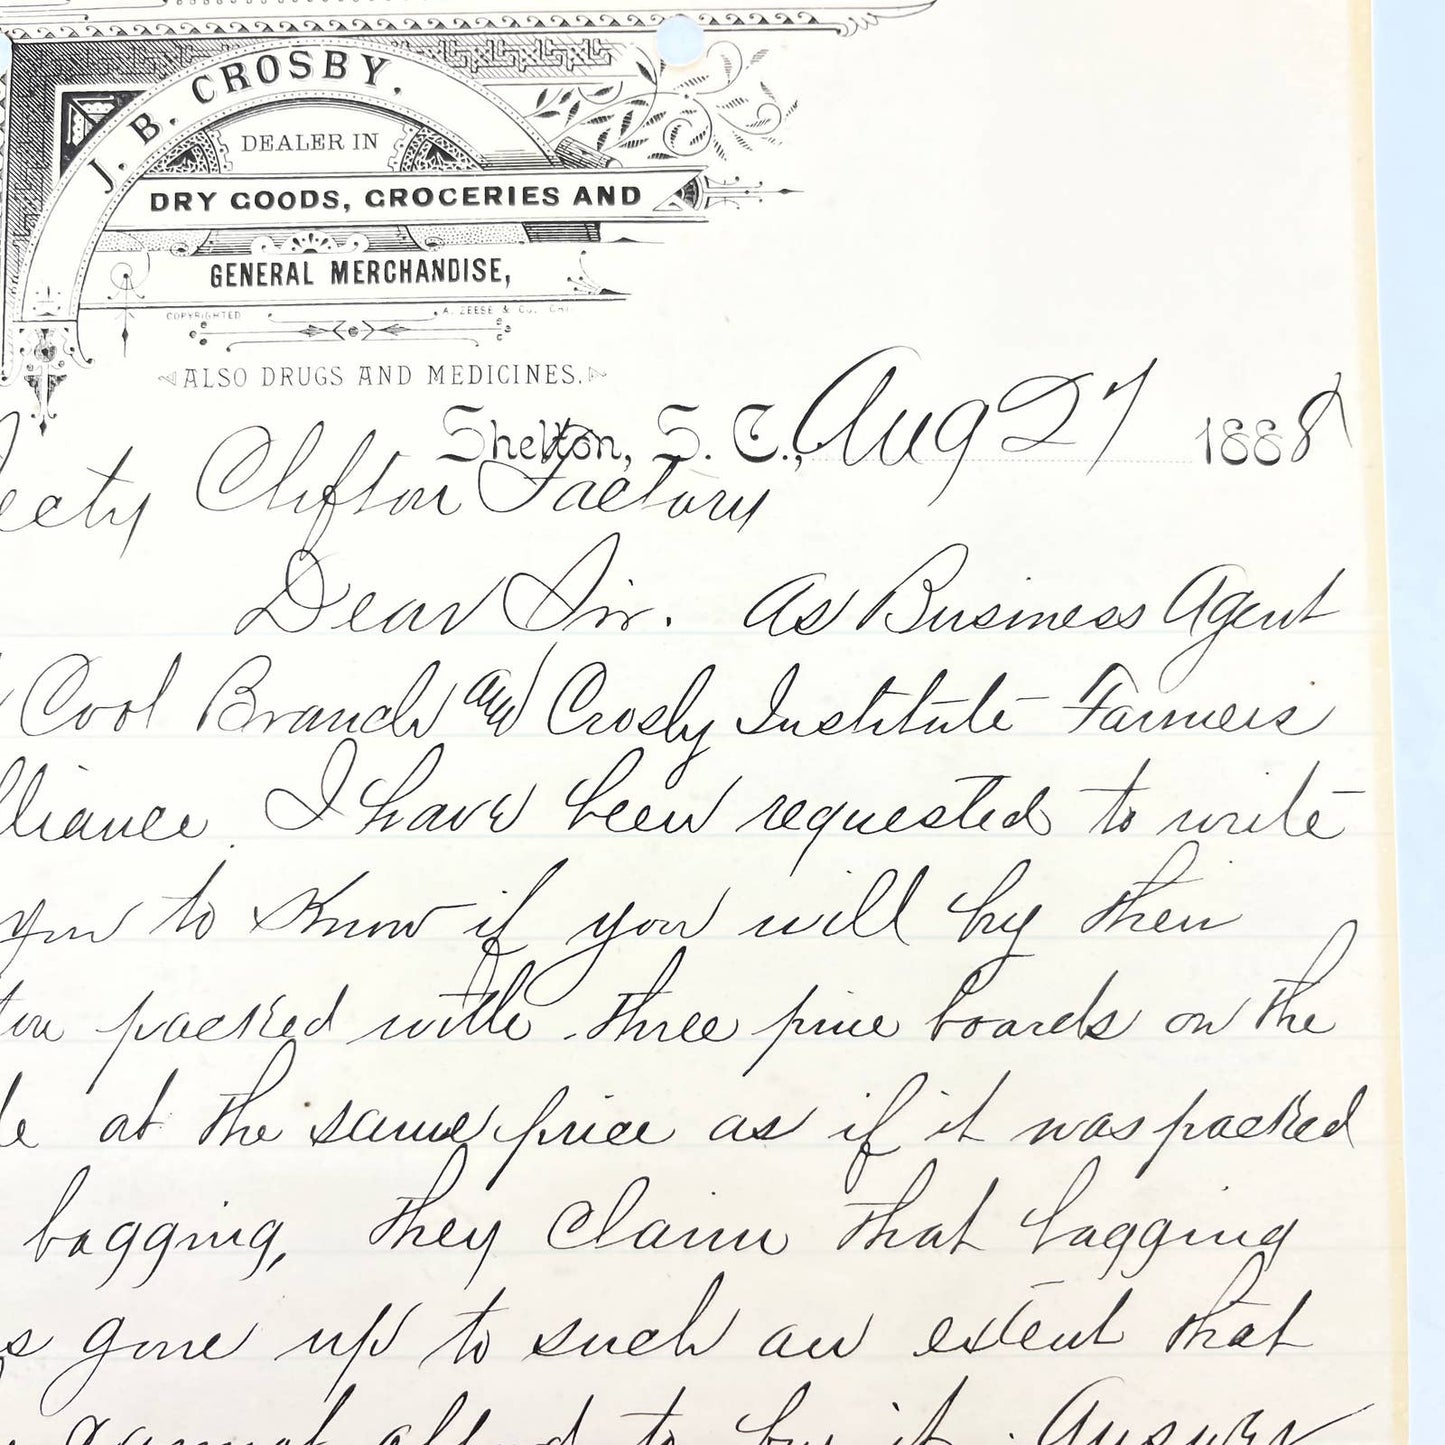 J. B. CROSBY.
DEALER IN
DRY GOODS, GROCERIES AND
GENERAL MERCHANDISE,
COPYRIGHTED A. ZEESE & CO. CHI
ALSO DRUGS AND MEDICINES.
Shelton, S. C., Aug 27 1888
ecty Clifton Factory
Dear Sir. As Business Agent
Cool Branch and Crosby Institute Farmers
lliance. I have been requested to write
you to know if you will by their
ton packed with three pine boards on the
le at the same price as if it was packed
bagging, they claim that bagging
s gone up to such an extent that
cannot afford to buy it. Answer